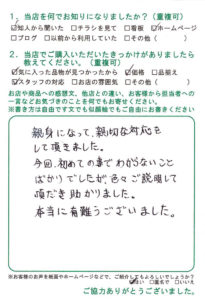 1、当店を何でお知りになりましたか？（重複可）
☑知人から聞いた □チラシを見て □看板 ☑ホームページ
□ブログ □以前から利用していた □その他（　　　）
2、当店でご購入いただいたきっかけがありましたら
教えてください。（重複可）
☑気に入った品物が見つかったから ☑価格 □品揃え
☑スタッフの対応 □お店の雰囲気 □その他（　　　）
お店や商品への感想文、他店との違い、お客様から担当者への
一言などお気づきのことを何でもお寄せください。
※書き方は自由です文でも似顔絵でもご自由にお書きください
親身になって、親切な対応を
して頂きました。
今回、初めての事でわからないこと
ばかりでしたが、色々ご説明して
頂だき助かりました。
本当に有難うございました。
※お客様のお声を紙面やホームページなどで、ご紹介してもよろしいでしょうか？
☑はい □匿名で □いいえ
ご協力ありがとうございました。